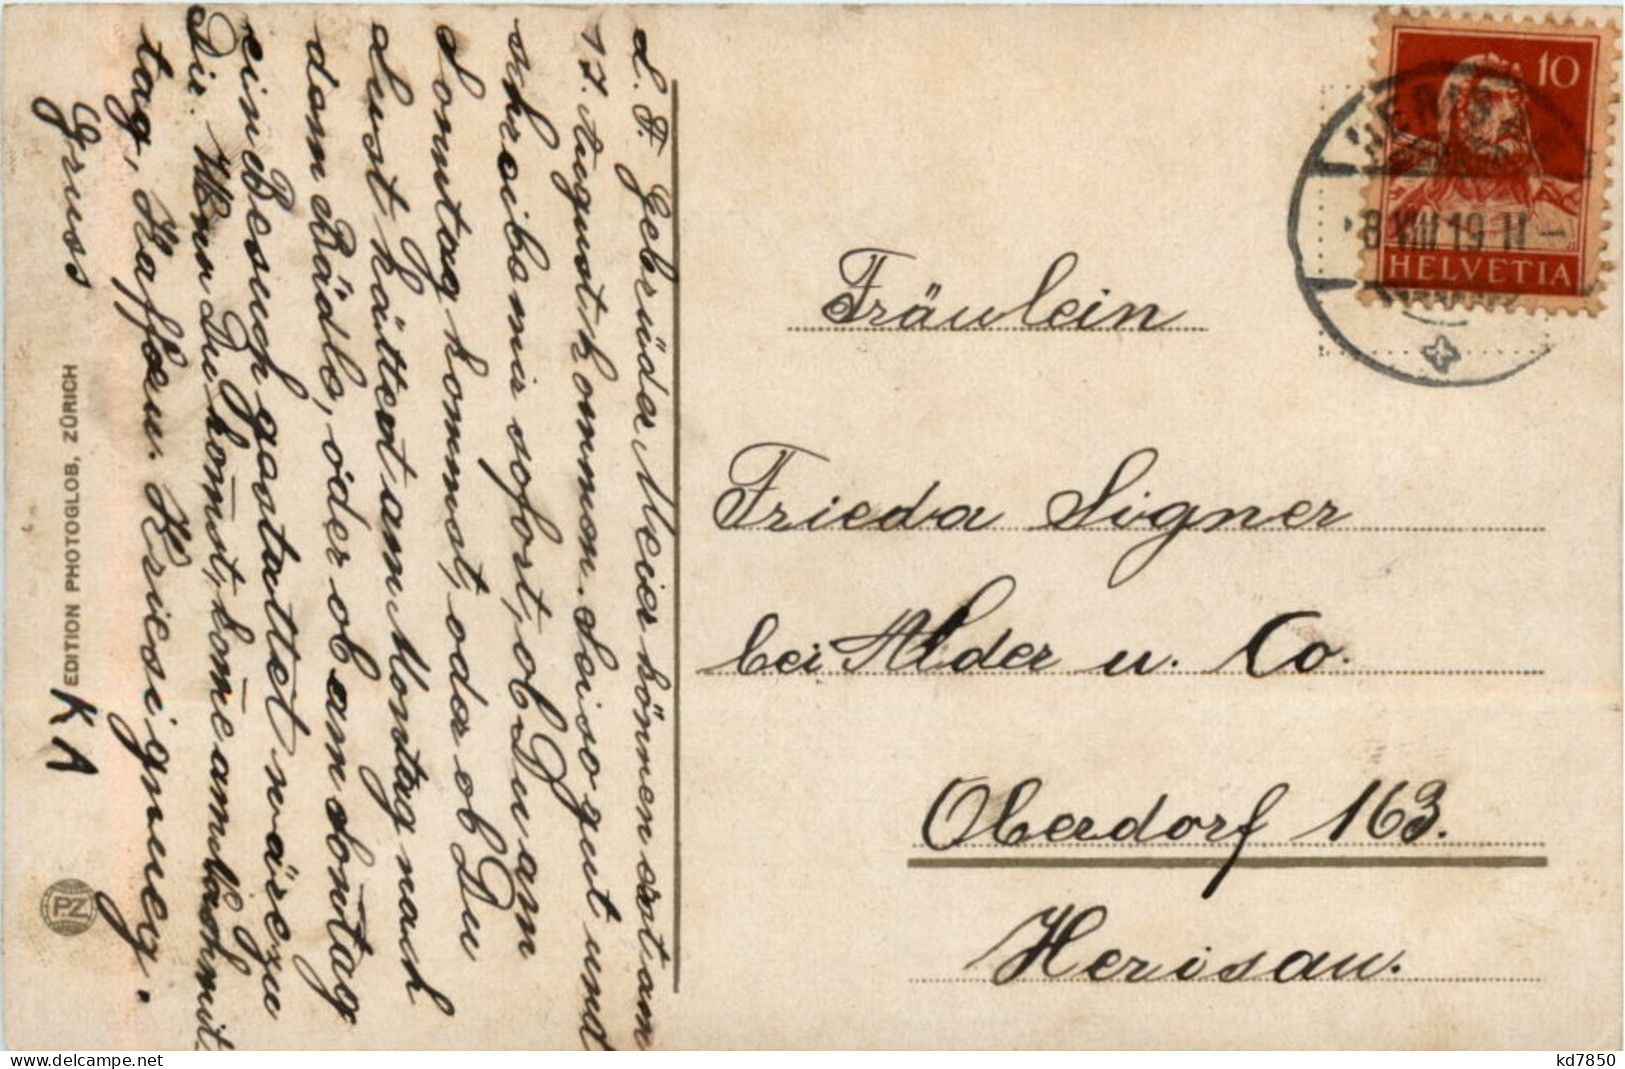 L. F. Gebrüder Meier können erst am
17. August kommen. Sei so gut und
schreibe mir sofort, ob Du am
Sonntag kommst, oder ob Du
Lust hättest am Montag nach
dem Bädle, oder ob am Sontag
ein Besuch gestattet wäre zu
Dir. Wenn Du komst, kome am mit
tag, Kaffeeu. Kriesignueg.
Gruss
K A
EDITION PHOTOGLOB, ZÜRICH
PZ
10
HELVETIA
HERISAU
8 VIII 19 11
Fräulein
Frieda Signer
bei Alder u. Co.
Oberdorf 163.
Herisau.
kd7850